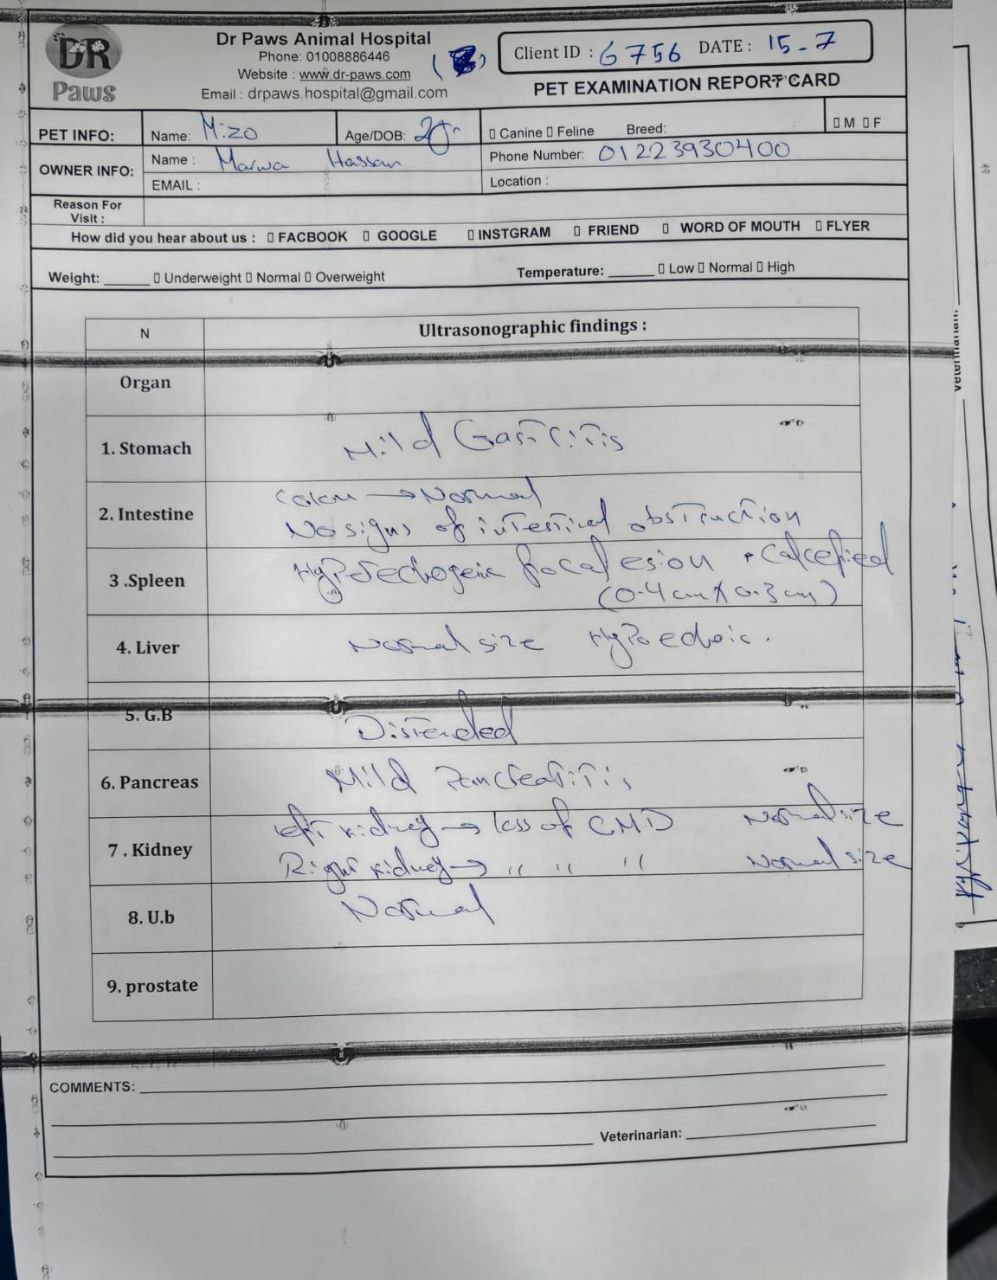 DR Paws
Dr Paws Animal Hospital
Phone: 01008886446
Website : www.dr-paws.com
Email : drpaws.hospital@gmail.com
Client ID : 6756 DATE : 15-7
PET EXAMINATION REPORT CARD
PET INFO: Name: Mizo Age/DOB: 2yr Canine Feline Breed: M F
OWNER INFO: Name : Marwa Hassan Phone Number: 01223930400
EMAIL : Location :
Reason For Visit :
How did you hear about us : FACBOOK GOOGLE INSTGRAM FRIEND WORD OF MOUTH FLYER
Weight: Underweight Normal Overweight Temperature: Low Normal High
N Ultrasonographic findings :
Organ
1. Stomach Mild Gastritis
2. Intestine Colon → Normal
No signs of intestinal obstruction
3 .Spleen focal lesion calcefied
(0.4 cm X 0.3 cm)
4. Liver Normal size Hypoechoic.
5. G.B Distended
6. Pancreas Mild Pancreatitis
7 . Kidney left kidney → loss of CMD Normal size
Right kidney → " " " Normal size
8. U.b Normal
9. prostate
COMMENTS:
Veterinarian:
Veterinarian: